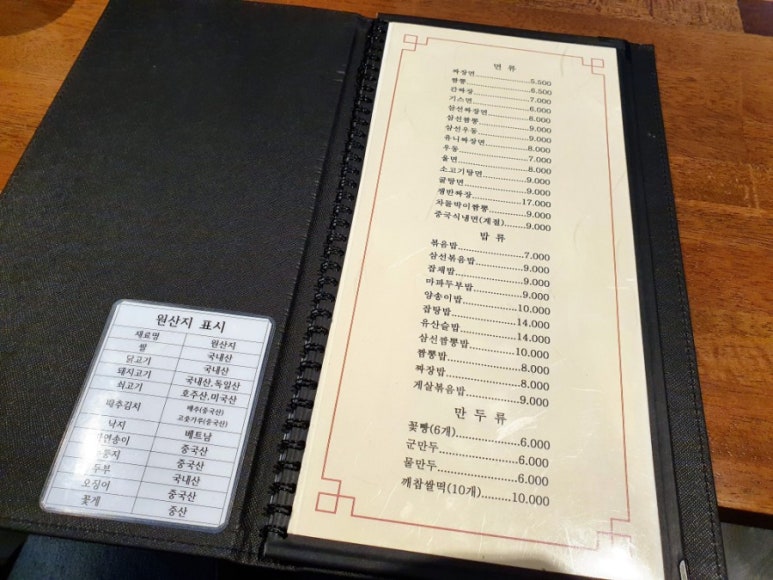 원산지 표시
재료명 원산지
쌀 국내산
닭고기 국내산
돼지고기 국내산,독일산
쇠고기 호주산,미국산
배추김치 배추(중국산)
고춧가루(중국산)
낙지 베트남
중국산
중국산
두부 국내산
오징어 중국산
꽃게 중산
면 류
짜장면 5.500
짬뽕 6.500
간짜장 7.000
기스면 6.000
삼선짜장면 8.000
삼선짬뽕 9.000
삼선우동 9.000
유니짜장면 8.000
우동 7.000
울면 8.000
소고기탕면 9.000
굴탕면 9.000
쟁반짜장 17.000
차돌박이짬뽕 9.000
중국식냉면(계절) 9.000
밥 류
볶음밥 7.000
삼선볶음밥 9.000
잡채밥 9.000
마파두부밥 9.000
양송이밥 10.000
잡탕밥 14.000
유산슬밥 14.000
삼선짬뽕밥 10.000
짬뽕밥 8.000
짜장밥 8.000
게살볶음밥 9.000
만 두 류
꽃빵(6개) 6.000
군만두 6.000
물만두 6.000
깨찹쌀떡(10개) 10.000